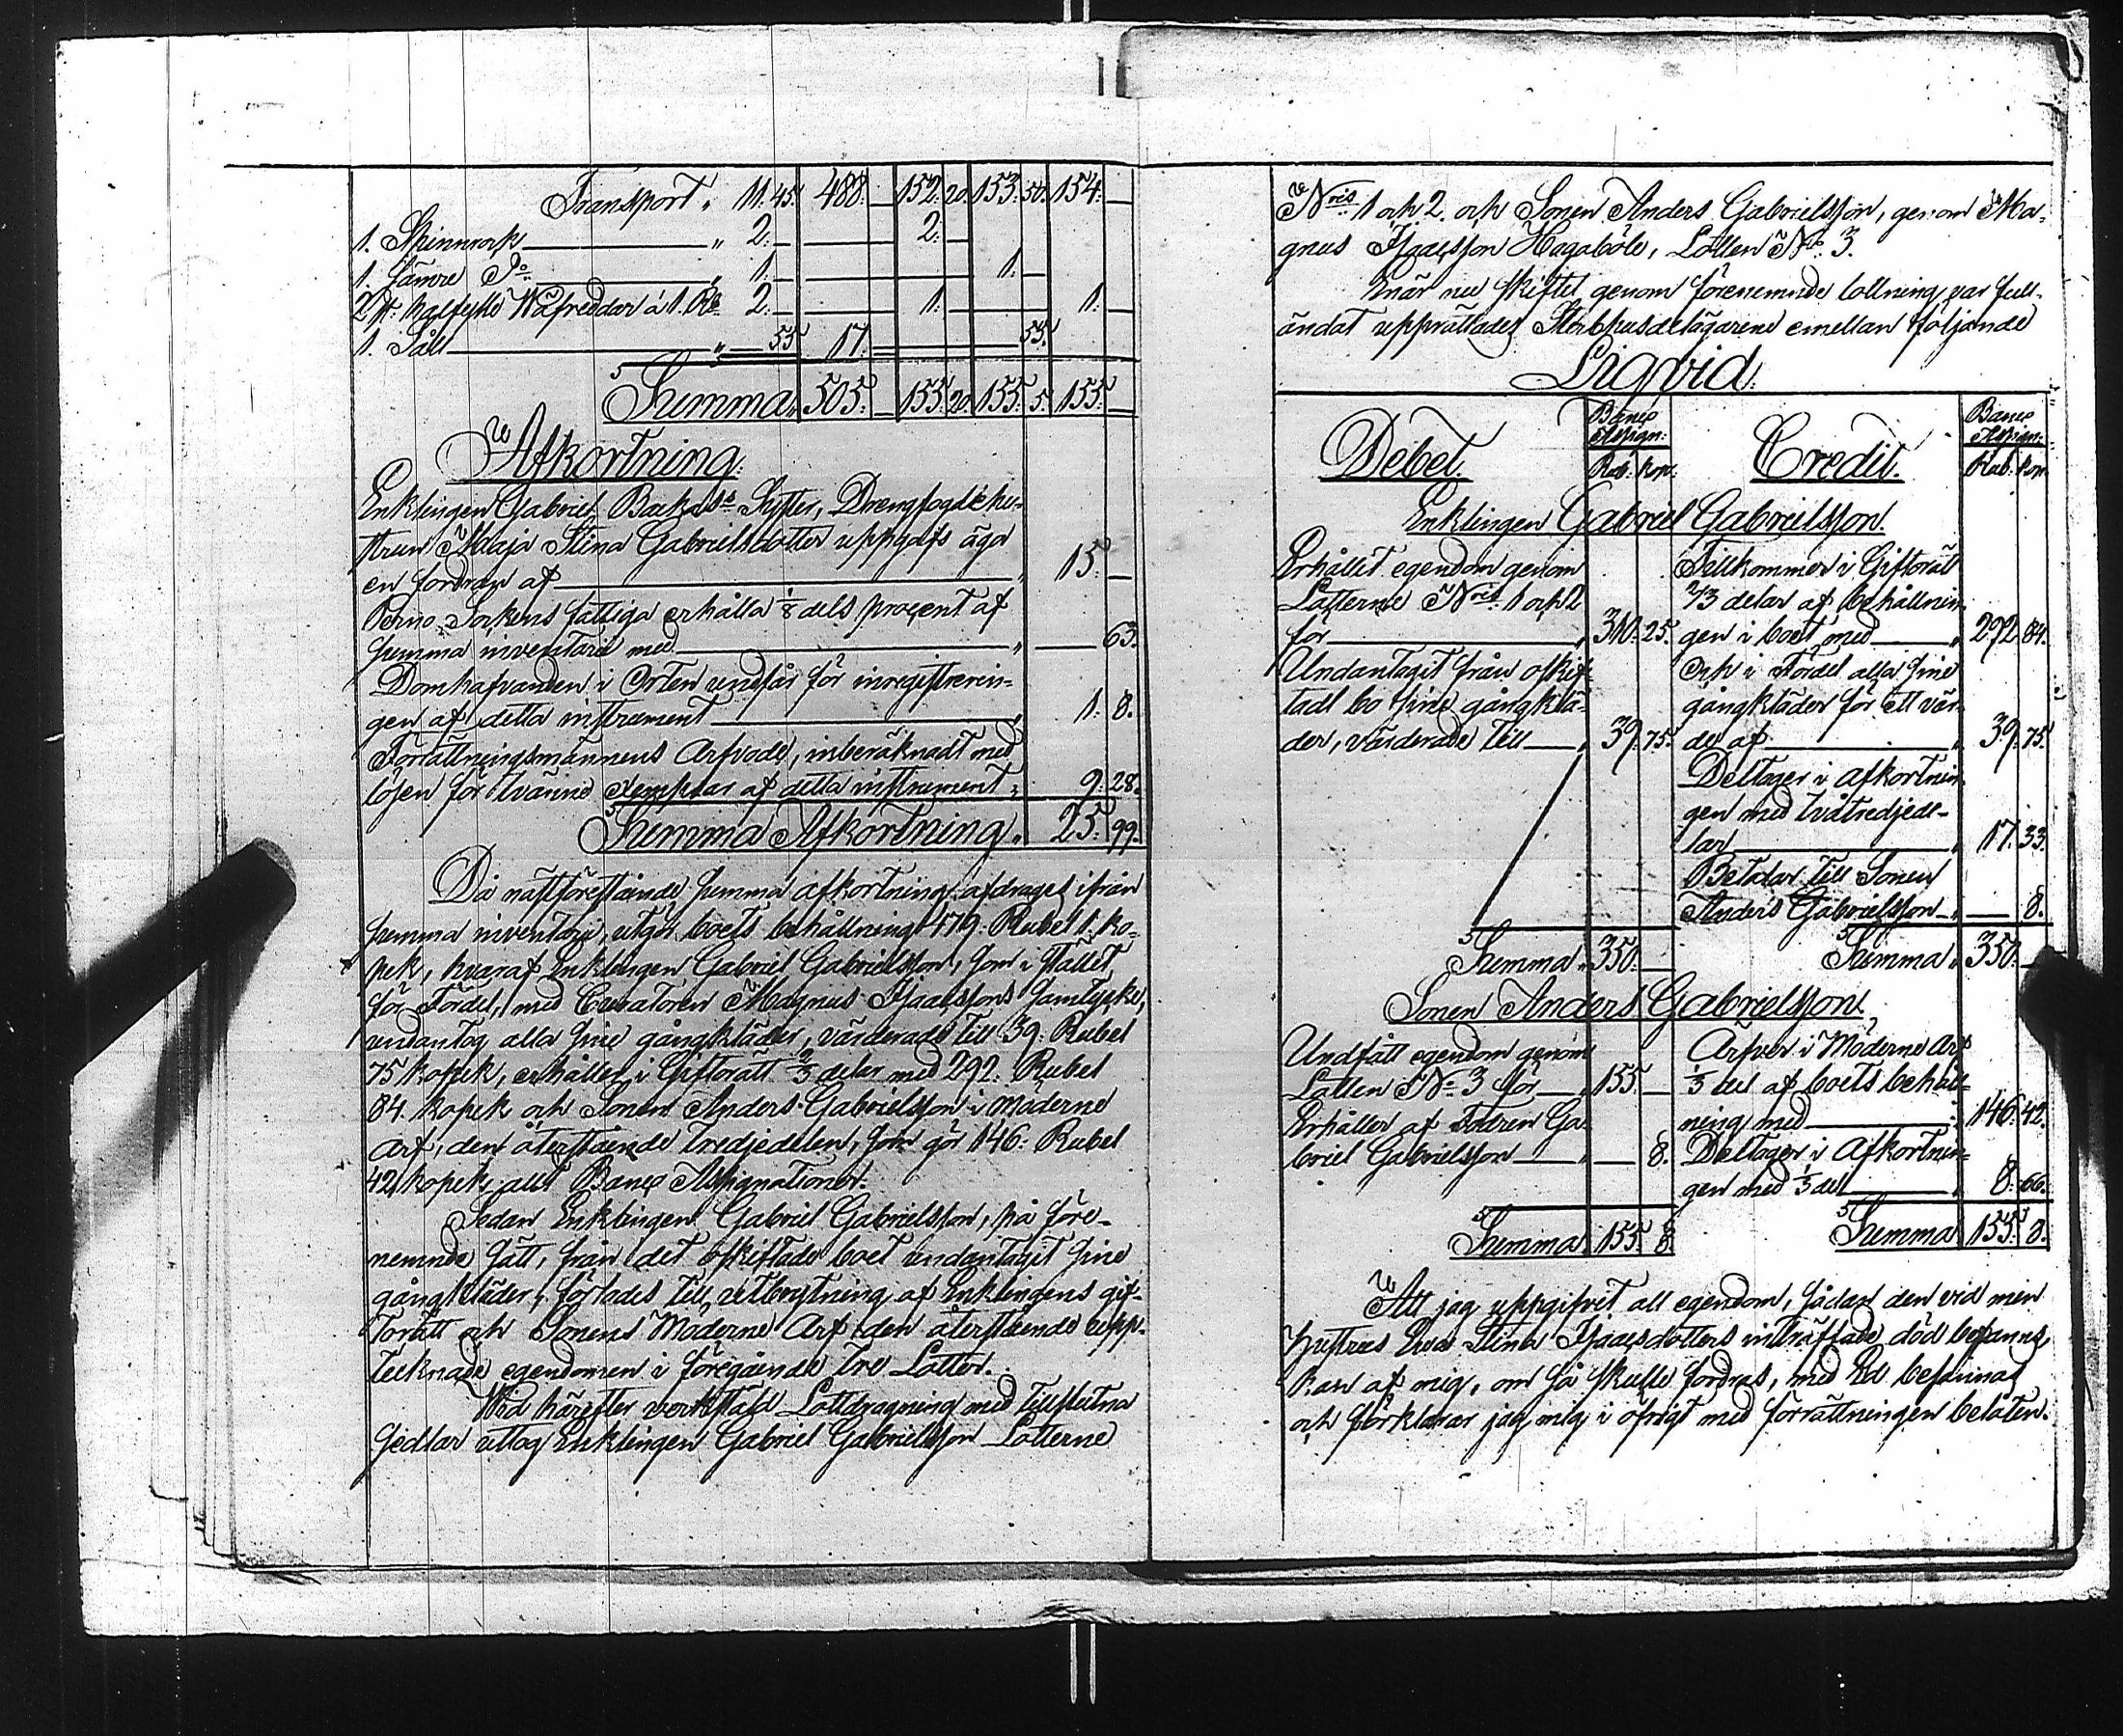 Transport „ 11. 45. 488. — 152. 20. 153. 50. 154. —
1. Skinnvork „ 2. — 2. —
1. Sämre Do „ 1. — 1. —
2 st. halfylle Wåfreddar á 1. Rb. 2. — 1. — 1. —
1. Såll „ — 55 17. 55.
Summa „ 505. — 155. 20. 155. 5. 155. —
Afkortning.
Enklingen Gabriel Backas Syster, Drengfogdehu-
strun Maja Stina Gabrielsdotter uppgafs äga
en fordran af „ 15. —
Perno Sockens fattiga erhålla 1/8 dels procent af
summa inventarii med „ — 63.
Domhafvanden i Orten undfår för inregistrerin-
gen af detta instrument „ 1. 8.
Förrättningsmännens Arfvode, inberäknadt med
lösen för tvänne exemplar af detta instrument „ 9. 28.
Summa Afkortning „ 25. 99.
Då nästförestående summa afkortning afdrages ifrån
summa inventarii, utgör boets behållning 479. Rubel 1. ko-
pek, hvaraf Enklingen Gabriel Gabrielsson, som i stället
för Fördel, med Curatoren Magnus Isaacssons samtycke,
undantog alla sine gångkläder, värderade till 39. Rubel
75 kopek, erhåller i Giftorätt 2/3 delar med 292. Rubel
84. kopek och Sonen Anders Gabrielsson i Möderne
arf, den återstående tredjedelen, som gör 146. Rubel
42 kopek allt Banco Assignationer.
Sedan Enklingen Gabriel Gabrielsson, på före-
nemnde sätt, från det oskiftade boet undantagit sine
gångkläder, förlades till utbrytning af Enklingens gif-
torätt och Sonens Möderne Arf den återstående upp-
tecknade egendomen i föregående tre Lotter.
Wid härefter verkställd Lottdragning med tillslutna
sedlar uttog Enklingen Gabriel Gabrielsson Lotterne
Nris 1 och 2. och Sonen Anders Gabrielsson, genom Ma-
gnus Isaacsson Hagaböle, Lotten No. 3.
När nu skiftet genom förenemnde lottning var full-
ändat upprättades Sterbhusdelägarene emellan följande
Liqvid.
Debet. Banco Assign: Rub. kop. Credit. Banco Assign: Rub. kop.
Enklingen Gabriel Gabrielsson.
Erhållit egendom genom Tillkommer i Giftorätt
Lotterne Nris 1 och 2 2/3 delar af behållnin-
för „ 310. 25. gen i boet med „ 292. 84.
Undantagit från oskif- Och i Fördel alla sine
tadt bo sine gångklä- gångkläder för ett vär-
der, värderade till „ 39. 75. de af „ 39. 75.
Deltager i afkortnin-
gen med tvåtredjede-
lar „ 17. 33.
Betalar till Sonen
Anders Gabrielsson „ — 8.
Summa „ 350. — Summa „ 350. —
Sonen Anders Gabrielsson.
Undfått egendom genom Ärfver i Möderne Arf
Lotten No. 3 för „ 155. — 1/3 del af boets behåll-
Erhåller af Fadren Ga- ning med „ 146. 42.
briel Gabrielsson „ — 8. Deltager i Afkortnin-
gen med 1/3 del „ 8. 66.
Summa 155. 8. Summa 155. 8.
Att jag uppgifvit all egendom, sådan den vid min
hustrus Eva Stina Isaacsdotters inträffade död befanns,
kan af mig, om så skulle fordras, med Ed besannas
och förklarar jag mig i öfrigt med förrättningen belåten.